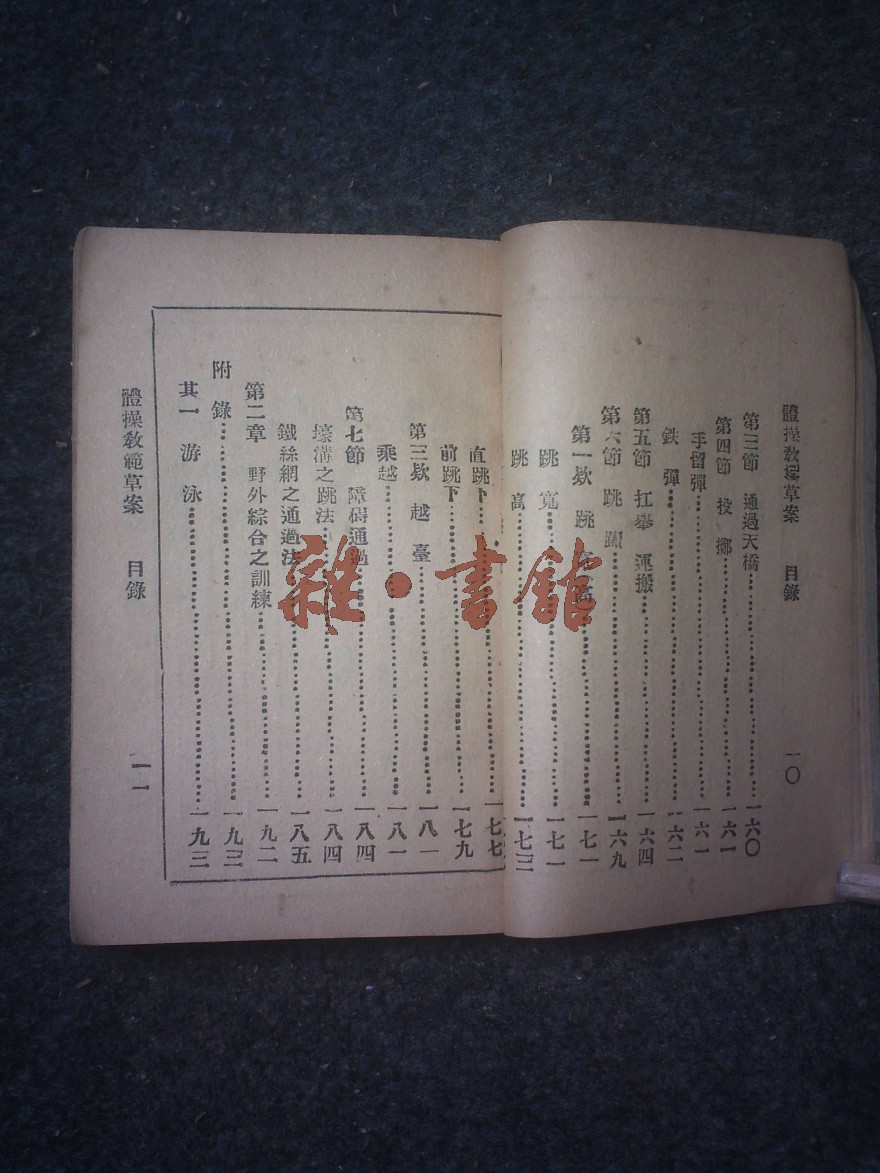 體操教範草案 目錄 一〇
第三節 通過天橋……一六〇
第四節 投擲……一六一
手留彈……一六一
鉄彈……一六二
第五節 扛舉 運搬……一六四
第六節 跳躍……一六九
第一欵 跳……一七一
跳寬……一七一
跳高……一七三
直跳下……一七七
前跳下……一七九
第三欵 越臺……一八一
乘越……一八一
第七節 障碍通過……一八四
壕溝之跳法……一八四
鐵絲網之通過法……一八五
第二章 野外綜合之訓練……一九二
附錄……一九三
其一 游泳……一九三
體操教範草案 目錄 一一
雜·書館